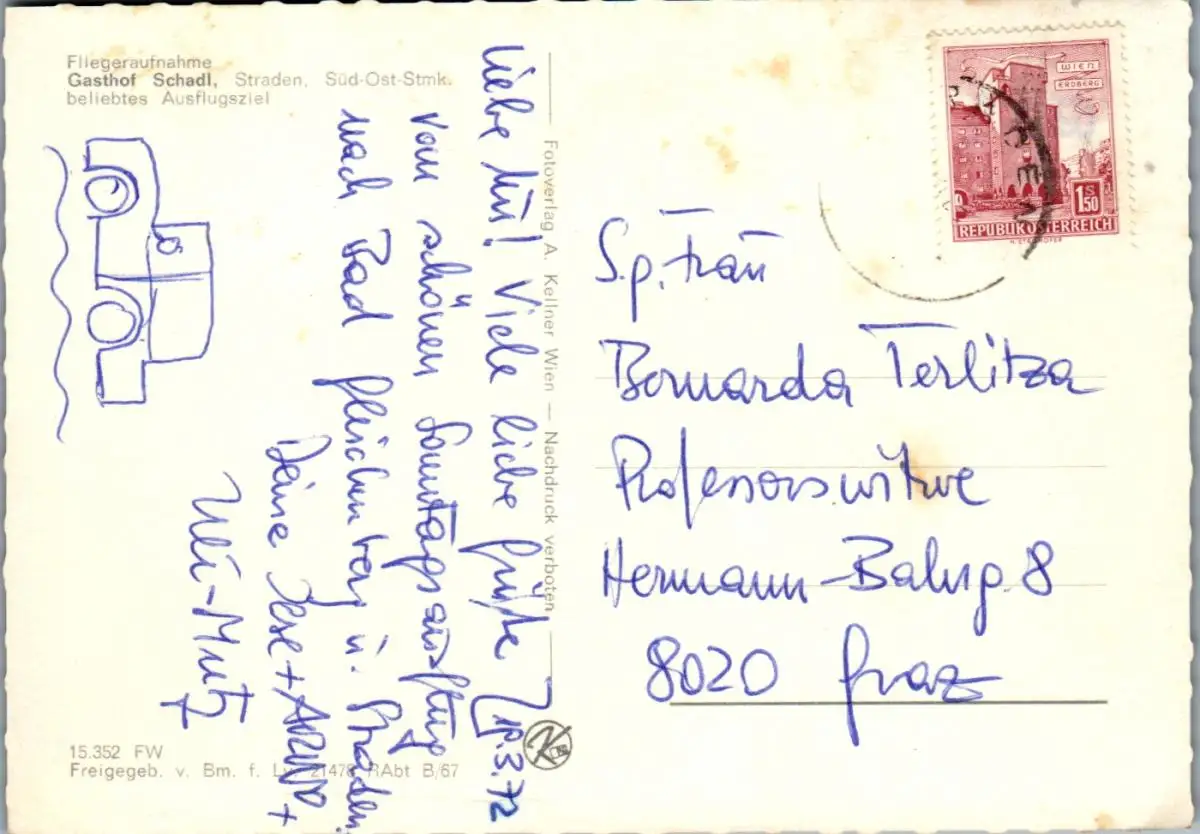 Fliegeraufnahme
Gasthof Schadl, Straden, Süd-Ost-Stmk.
beliebtes Ausflugsziel
Liebe
Viele liebe Grüße
19.3.72
vom schönen Sonntagsausflug
nach Bad Gleichenberg u. Straden
Deine Ilse +
+
Fotoverlag A. Kellner Wien — Nachdruck verboten
WIEN
ERDBERG
1 S 50
REPUBLIK ÖSTERREICH
S.g. Frau
Bernarda Terlitza
Professorswitwe
Hermann-Bahrg. 8
8020 Graz
15.352 FW
Freigegeb. v. Bm. f. Lv. 21478 RAbt B/67